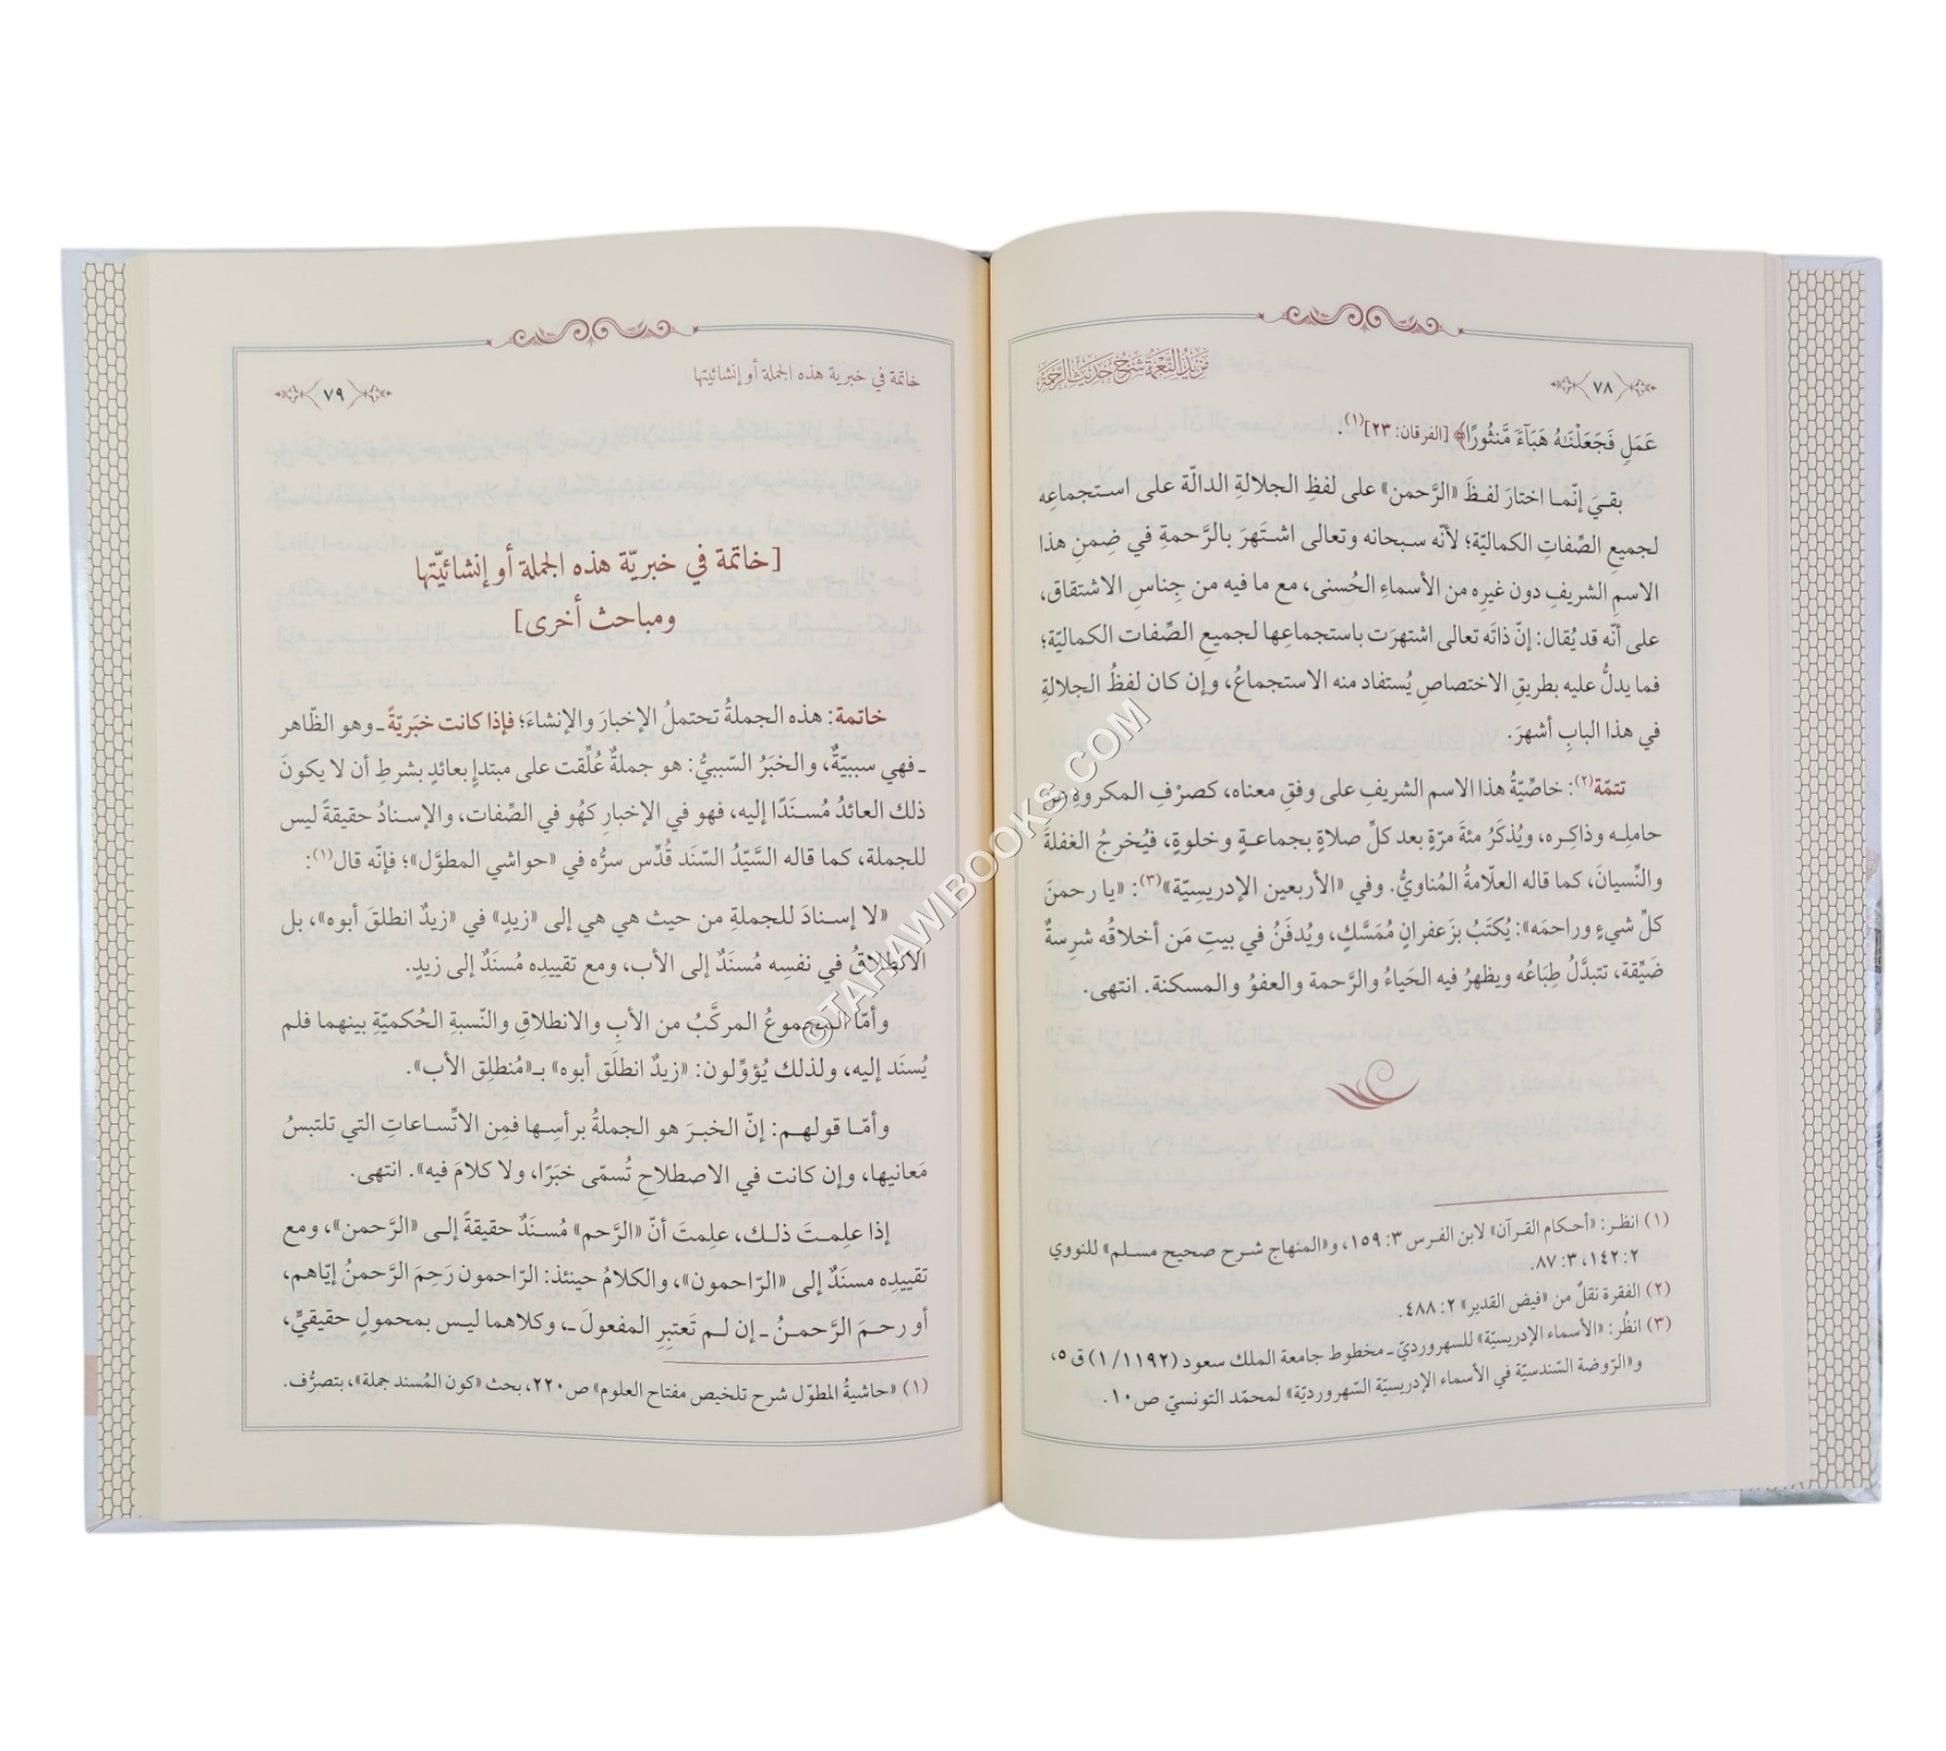 ٧٨
مزيد النعمة شرح حديث الرحمة
عَمَلٍ فَجَعَلْنَٰهُ هَبَآءً مَّنثُورًا﴾ [الفرقان: ٢٣](١).
بقيَ إنّما اختارَ لفظَ «الرَّحمن» على لفظِ الجلالةِ الدالّة على استجماعِه
لجميعِ الصِّفاتِ الكماليّة؛ لأنّه سبحانه وتعالى اشتَهرَ بالرَّحمةِ في ضِمنِ هذا
الاسمِ الشريفِ دون غيرِه من الأسماءِ الحُسنى، مع ما فيه من جِناسِ الاشتقاق،
على أنّه قد يُقال: إنّ ذاتَه تعالى اشتهرَت باستجماعِها لجميعِ الصِّفات الكماليّة؛
فما يدلُّ عليه بطريقِ الاختصاصِ يُستفاد منه الاستجماعُ، وإن كان لفظُ الجلالةِ
في هذا البابِ أشهرَ.
تتمّة(٢): خاصِّيّةُ هذا الاسم الشريفِ على وفقِ معناه، كصرْفِ المكروهِ عن
حامِلِه وذاكِرِه، ويُذكَرُ مئةَ مرّةٍ بعد كلِّ صلاةٍ بجماعةٍ وخلوةٍ، فيُخرجُ الغفلةَ
والنِّسيانَ، كما قاله العلّامةُ المُناويُّ. وفي «الأربعين الإدريسيّة»(٣): «يا رحمنَ
كلِّ شيءٍ وراحمَه»: يُكتَبُ بزَعفرانٍ مُمَسَّكٍ، ويُدفَنُ في بيتِ مَن أخلاقُه شرِسةٌ
ضَيِّقة، تتبدَّلُ طِبَاعُه ويظهرُ فيه الحَياءُ والرَّحمة والعفوُ والمسكنة. انتهى.
(١) انظر: «أحكام القرآن» لابن الفرس ٣: ١٥٩، و«المنهاج شرح صحيح مسلم» للنووي
٢: ١٤٢، ٣: ٨٧.
(٢) الفقرة نقلٌ من «فيض القدير» ٢: ٤٨٨.
(٣) انظُر: «الأسماء الإدريسيّة» للسهرورديّ ـ مخطوط جامعة الملك سعود (١/١١٩٢) ق ٥،
و«الرّوضة السّندسيّة في الأسماء الإدريسيّة السّهرورديّة» لمحمّد التونسيّ ص١٠.
خاتمة في خبرية هذه الجملة أو إنشائيتها
٧٩
[خاتمة في خبريّة هذه الجملة أو إنشائيّتها
ومباحث أخرى]
خاتمة: هذه الجملةُ تحتملُ الإخبارَ والإنشاءَ؛ فإذا كانت خبَريّةً ـ وهو الظّاهر
ـ فهي سببيّةٌ، والخبَرُ السّببيُّ: هو جملةٌ عُلِّقت على مبتدإٍ بعائدٍ بشرطِ أن لا يكونَ
ذلك العائدُ مُسنَدًا إليه، فهو في الإخبارِ كهُو في الصِّفات، والإسنادُ حقيقةً ليس
للجملة، كما قاله السَّيّدُ السّنَد قُدِّس سرُّه في «حواشي المطوَّل»؛ فإنّه قال(١):
«لا إسنادَ للجملةِ من حيث هي هي إلى «زيدٍ» في «زيدٌ انطلقَ أبوه»، بل
الانطلاقُ في نفسِه مُسنَدٌ إلى الأب، ومع تقييدِه مُسنَدٌ إلى زيدٍ.
وأمّا المجموعُ المركَّبُ من الأبِ والانطلاقِ والنّسبةِ الحُكميّةِ بينهما فلم
يُسنَد إليه، ولذلك يُؤوِّلون: «زيدٌ انطلَق أبوه» بـ«مُنطلِق الأب».
وأمّا قولهم: إنّ الخبرَ هو الجملةُ برأسِها فمِن الاتِّساعاتِ التي تلتبسُ
مَعانيها، وإن كانت في الاصطلاحِ تُسمّى خبَرًا، ولا كلامَ فيه». انتهى.
إذا علِمتَ ذلك، علِمتَ أنّ «الرَّحم» مُسنَدٌ حقيقةً إلى «الرَّحمن»، ومع
تقييدِه مسنَدٌ إلى «الرّاحمون»، والكلامُ حينئذ: الرّاحمون رَحِمَ الرَّحمنُ إيّاهم،
أو رحمَ الرَّحمنُ ـ إن لم تَعتبِرِ المفعولَ ـ، وكلاهما ليس بمحمولٍ حقيقيٍّ،
(١) «حاشيةُ المطوّل شرح تلخيص مفتاح العلوم» ص٢٢٠، بحث «كون المُسند جملة»، بتصرُّف.
©TAHAWIBOOKS.COM